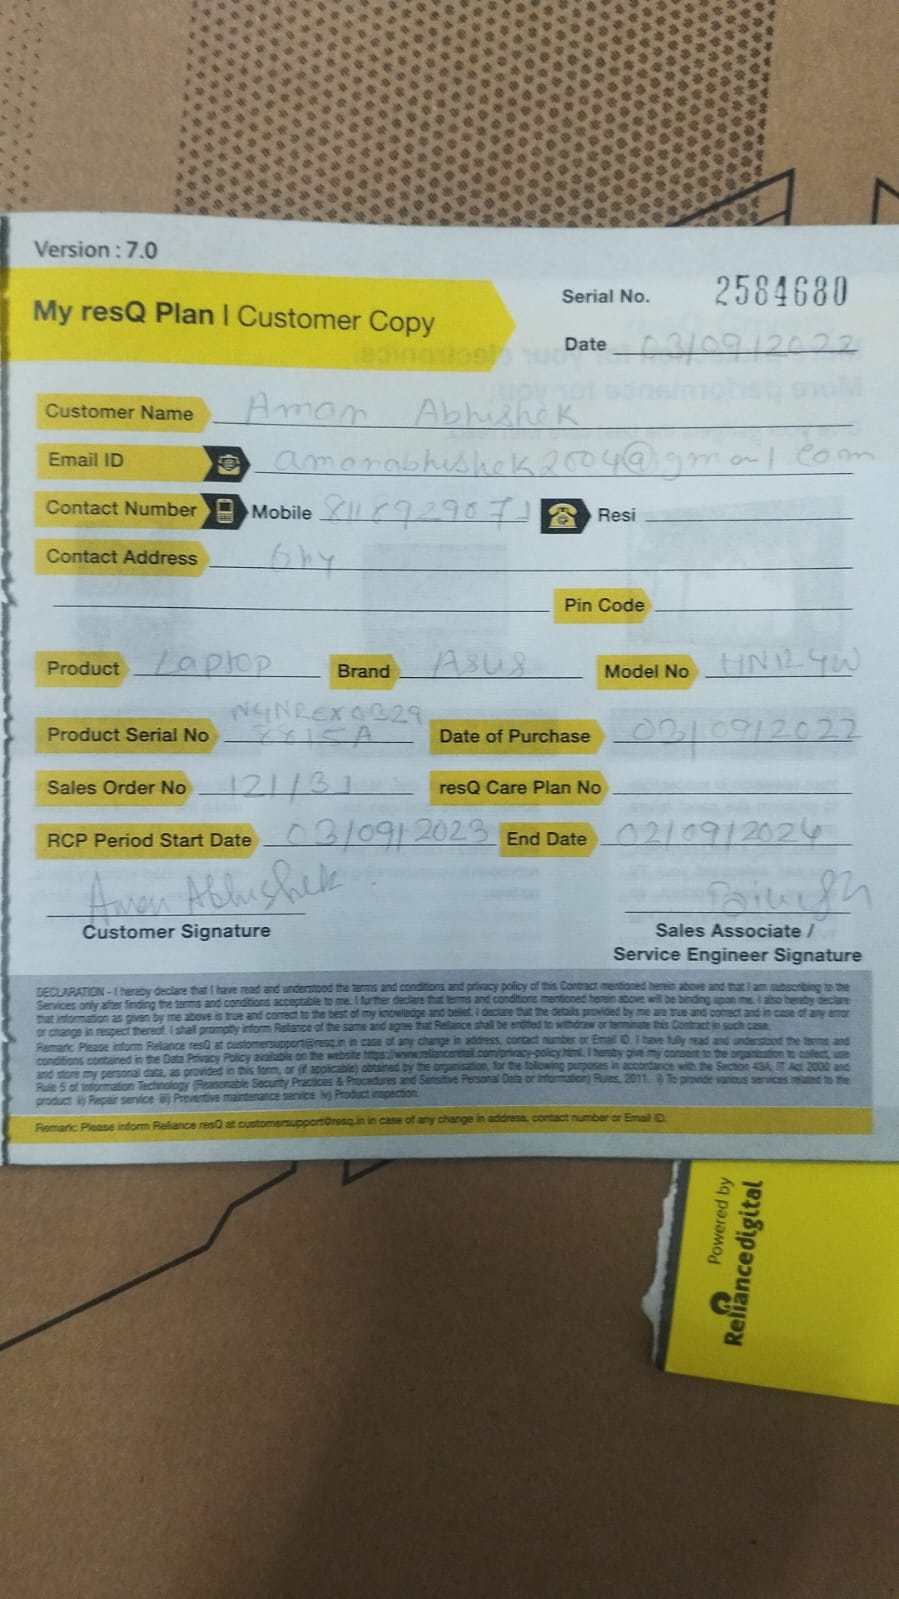 Version : 7.0
My resQ Plan | Customer Copy
Serial No. 2584680
Date 03/09/2022
Customer Name Aman Abhishek
Email ID amanabhishek2004@gmail.com
Contact Number Mobile 8118929071 Resi
Contact Address Ghy
Pin Code
Product Laptop Brand Asus Model No HN124W
Product Serial No 8815A Date of Purchase 03/09/2022
Sales Order No 121/31 resQ Care Plan No
RCP Period Start Date 03/09/2023 End Date 02/09/2024
Aman Abhishek
Customer Signature
Sales Associate /
Service Engineer Signature
DECLARATION - I hereby declare that I have read and understood the terms and conditions and privacy policy of this Contract mentioned herein above and that I am subscribing to the
Services only after finding the terms and conditions acceptable to me. I further declare that terms and conditions mentioned herein above will be binding upon me. I also hereby declare
that information as given by me above is true and correct to the best of my knowledge and belief. I declare that the details provided by me are true and correct and in case of any error
or change in respect thereof, I shall promptly inform Reliance of the same and agree that Reliance shall be entitled to withdraw or terminate this Contract in such case.
Remark: Please inform Reliance resQ at customersupport@resq.in in case of any change in address, contact number or Email ID. I have fully read and understood the terms and
conditions contained in the Data Privacy Policy available on the website https://www.relianceretail.com/privacy-policy.html. I hereby give my consent to the organization to collect, use
and store my personal data, as provided in this form, or (if applicable) obtained by the organisation, for the following purposes in accordance with the Section 43A, IT Act 2000 and
Rule 5 of Information Technology (Reasonable Security Practices & Procedures and Sensitive Personal Data or Information) Rules, 2011. i) To provide various services related to the
product ii) Repair service iii) Preventive maintenance service iv) Product inspection.
Remark: Please inform Reliance resQ at customersupport@resq.in in case of any change in address, contact number or Email ID.
Powered by
Reliancedigital